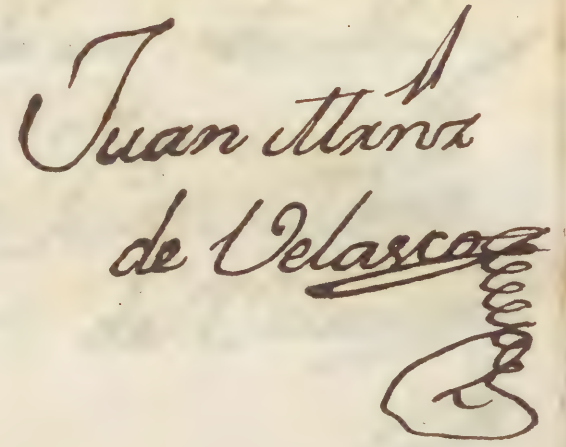 Juan Mxnz
de Velasco